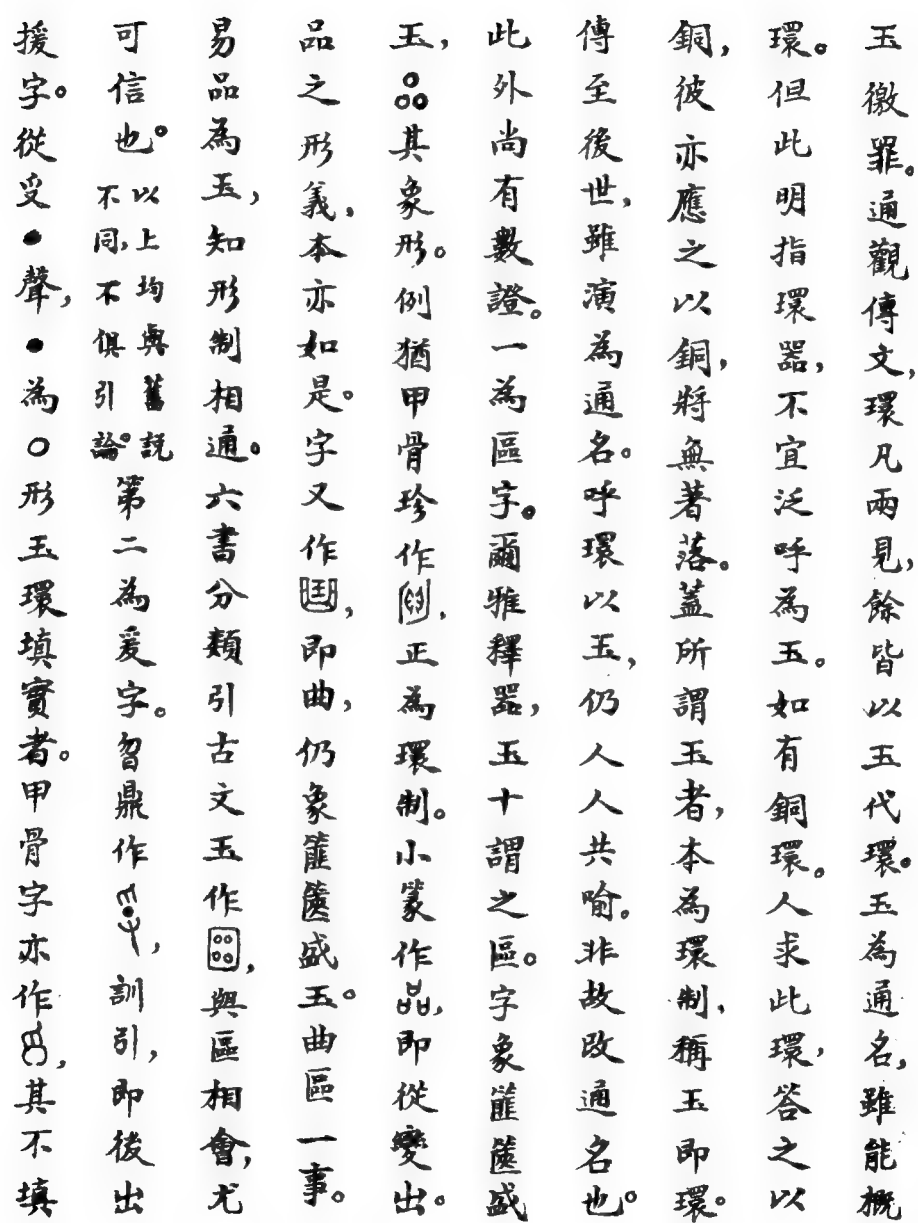 玉徼罪。通觀傳文，環凡兩見，餘皆以玉代環。玉為通名，雖能概
環。但此明指環器，不宜泛呼為玉。如有銅環。人求此環，答之以
銅，彼亦應之以銅，將無著落。蓋所謂玉者，本為環制，稱玉即環。
傳至後世，雖演為通名。呼環以玉，仍人人共喻。非故改通名也。
此外尚有數證。一為區字。爾雅釋器，玉十謂之區。字象匪匧盛
玉，其象形。例猶甲骨珍作，正為環制。小篆作品，即從變出。
品之形義，本亦如是。字又作，即曲，仍象匪匧盛玉。曲區一事。
易品為玉，知形制相通。六書分類引古文玉作，與區相會，尤
可信也。以上均與舊説不同，不俱引論。第二為爰字。曶鼎作，訓引，即後出
援字。從𠬪●聲，●為○形玉環填實者。甲骨字亦作，其不填